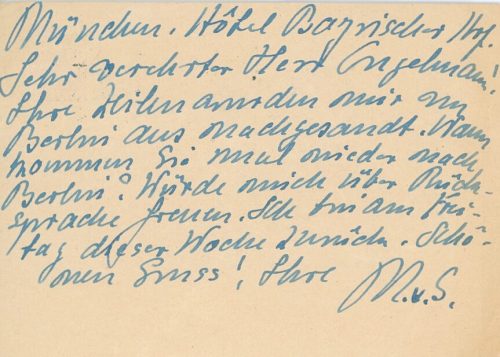 München. Hôtel Bayrischer Hof.
Sehr verehrter Herr Engelmann!
Ihre Zeilen wurden mir von
Berlin aus nachgesandt. Wann
kommen Sie mal wieder nach
Berlin? Würde mich über Rück-
sprache freuen. Ich bin am Frei-
tag dieser Woche zurück. Schö-
nen Gruss! Ihre
M.v.S.